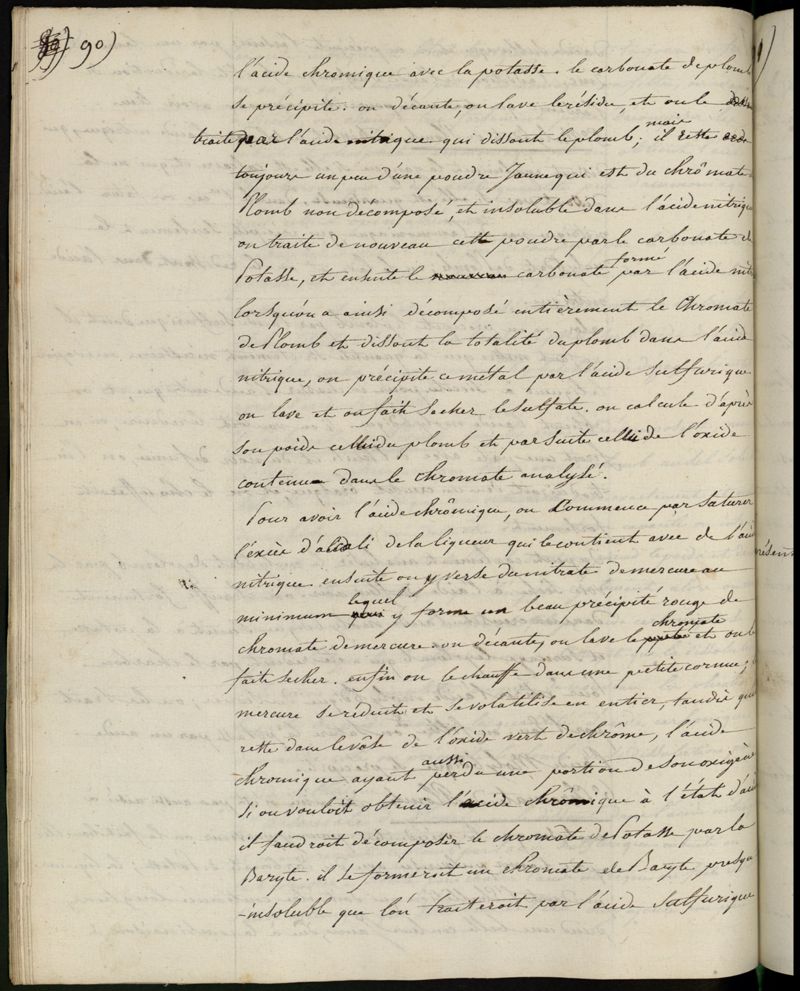 90)
l'acide chromique avec la potasse. le carbonate de plomb
se précipite. on décante, on lave le résidu, et on le
traite par l'acide nitrique qui dissout le plomb; mais il reste
toujours un peu d'une poudre Jaune qui est du chrômate
Plomb non décomposé, et insoluble dans l'acide nitrique
on traite de nouveau cette poudre par le carbonate de
Potasse, et ensuite le carbonate formé par l'acide nit
lorsqu'on a ainsi décomposé entièrement le Chromate
de Plomb et dissout la totalité du plomb dans l'acide
nitrique, on précipite ce métal par l'acide Sulfurique
on lave et on fait Secher le Sulfate. on calcule d'après
son poids celui du plomb et par suite celui de l'oxide
contenu dans le chromate analysé.
Pour avoir l'acide chrômique, on Commence par Saturer
l'excès d'alcali de la liqueur qui le contient avec de l'aci
nitrique ensuite on y verse du nitrate de mercure au
minimum lequel y forme un beau précipité rouge de
chromate de mercure. on décante, on lave le chromate et on l
fait secher. enfin on le chauffe dans une petite cornue;
mercure se réduit et se volatilise en entier, tandis que
reste dans le vâse de l'oxide vert de chrôme, l'acide
chromique ayant aussi perdu une portion de son oxigène
Si on vouloit obtenir l'acide chrômique à l'état d'aci
il faudroit décomposer le chromate de Potasse par la
Baryte. il se formeroit un chromate de Baryte presqu
-insoluble que l'on traiteroit par l'acide Sulfurique